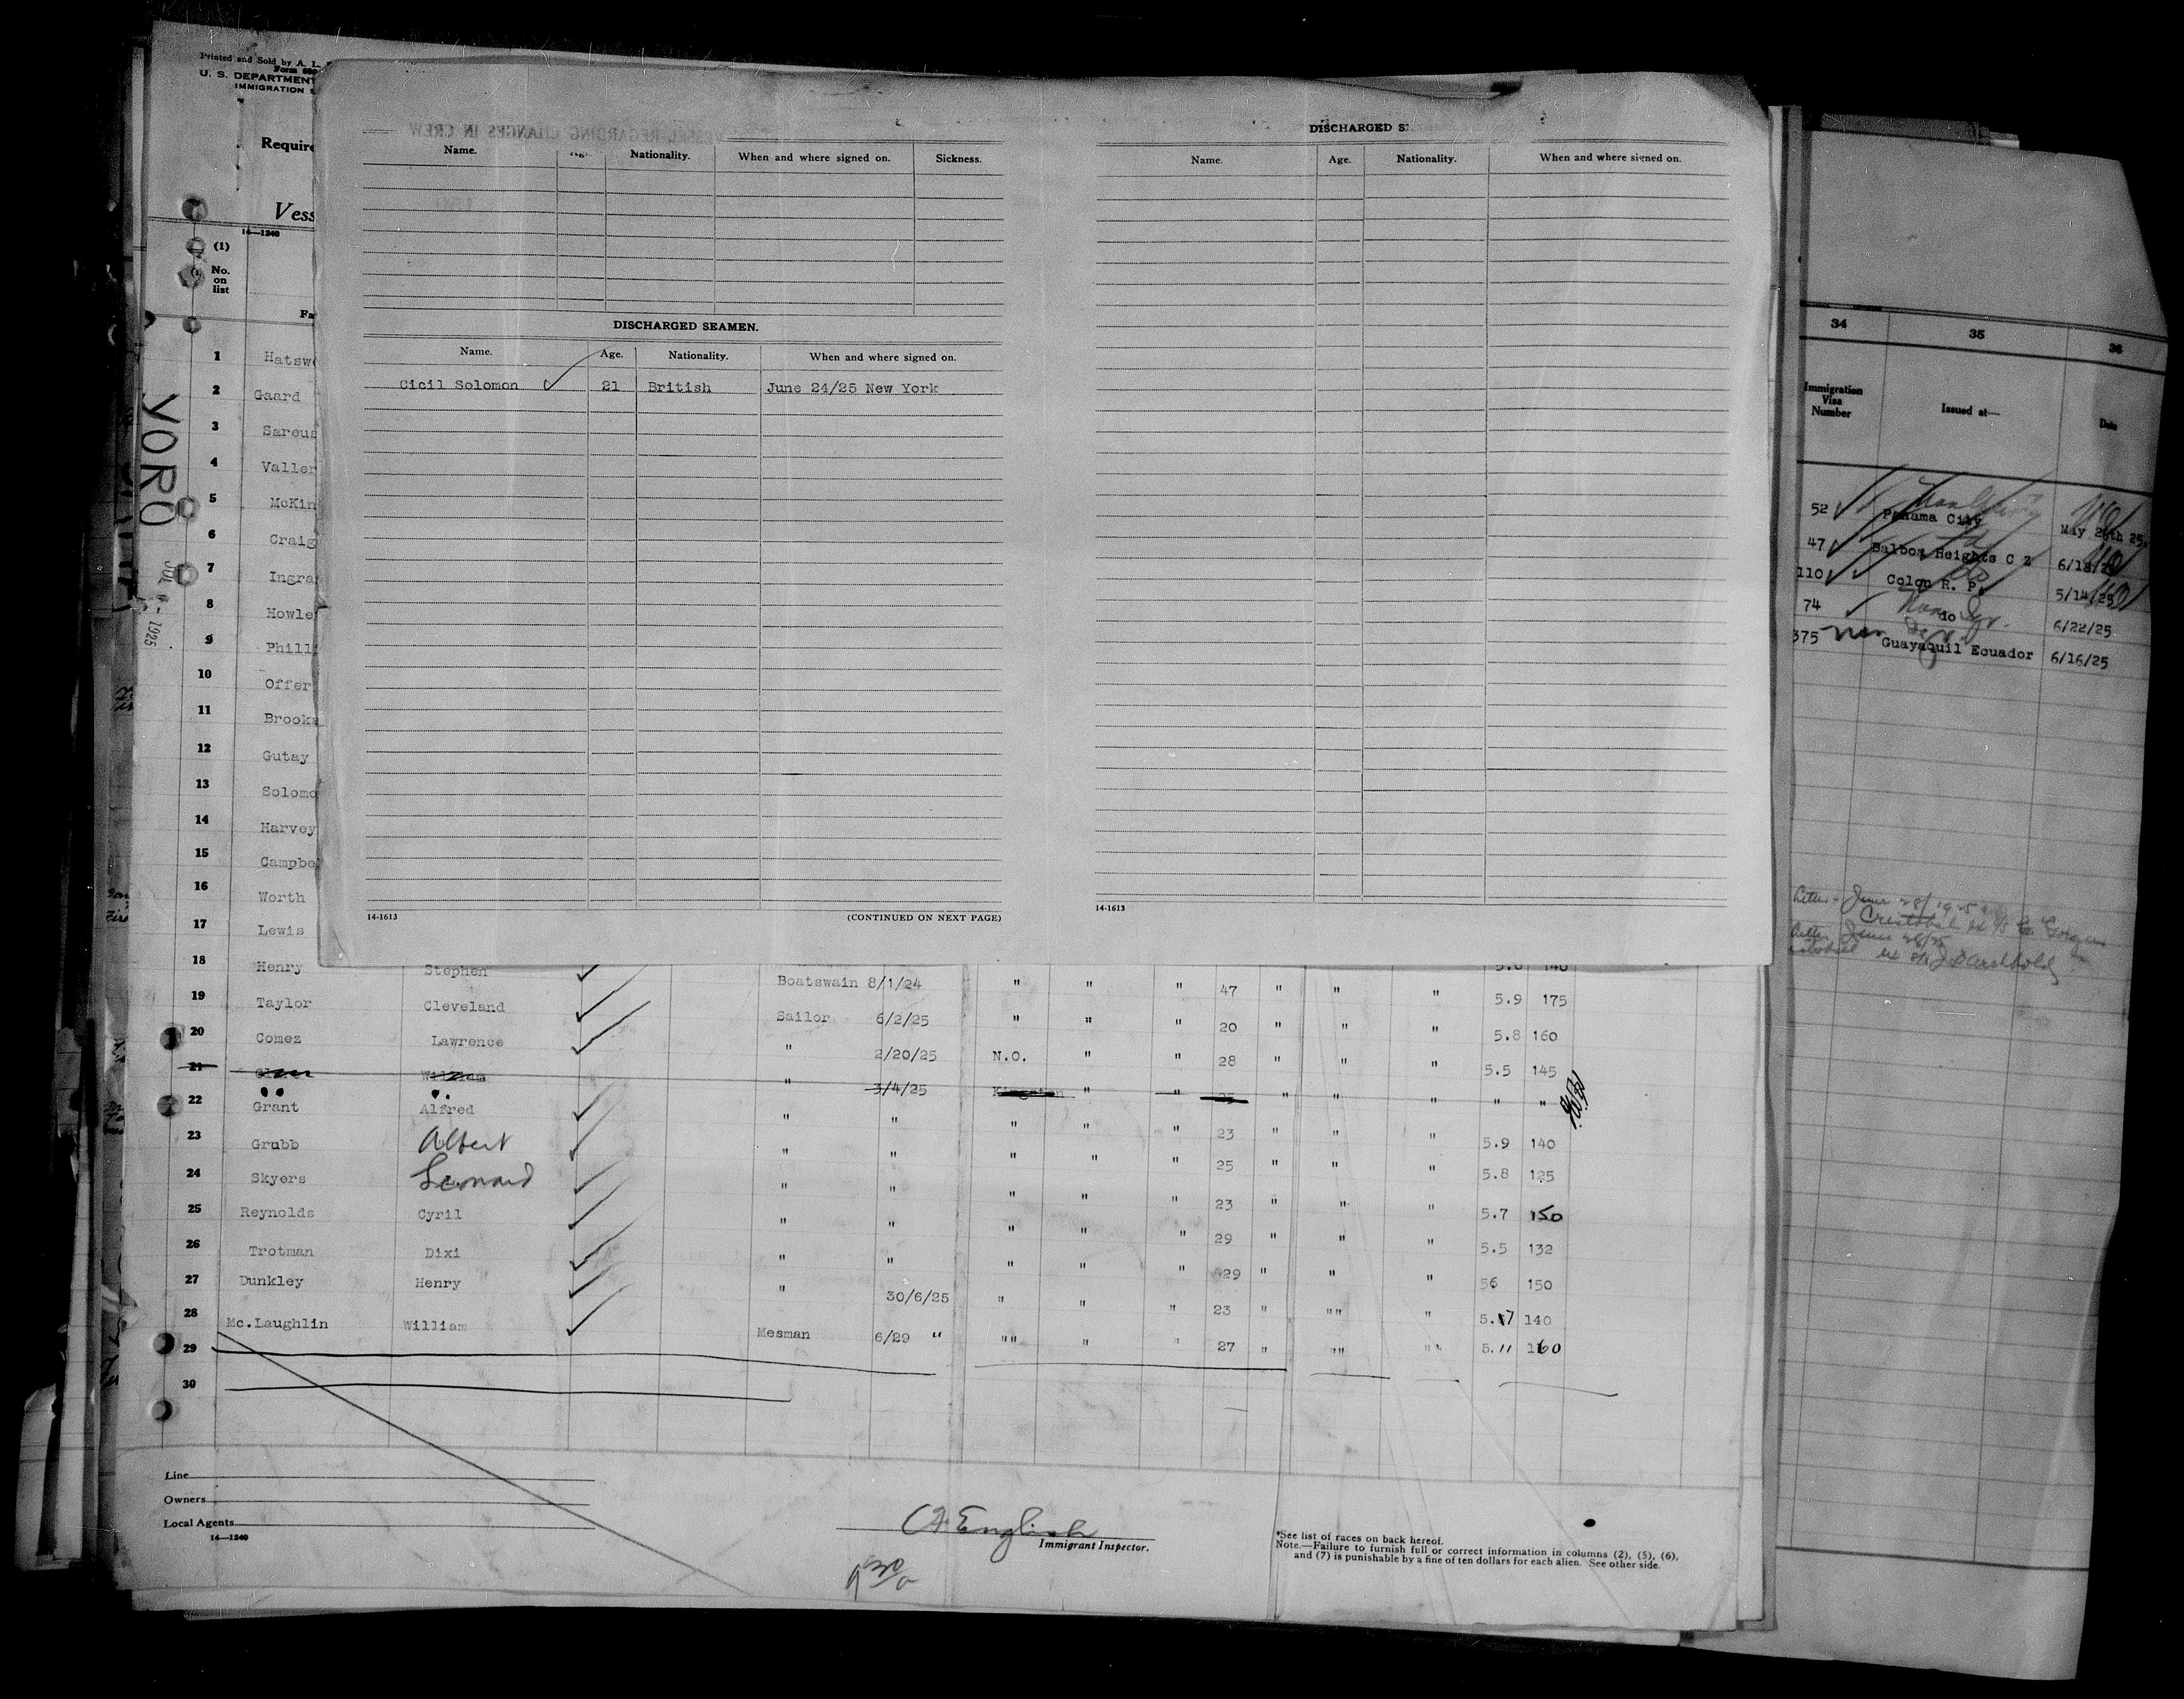 Printed and Sold by A. L.
U. S. DEPARTMENT
IMMIGRATION
Require
Vess
14—1240
(1)
No.
on
list
Fa
YORO
JUL 1925
1 Hatsw
2 Gaard
3 Sareus
4 Valler
5 McKin
6 Craig
7 Ingra
8 Howle
9 Phill
10 Offer
11 Brooks
12 Gutay
13 Solomo
14 Harvey
15 Campbe
16 Worth
17 Lewis
VESSEL REGARDING CHANGES IN CREW
Name. Age. Nationality. When and where signed on. Sickness.
DISCHARGED SEAMEN.
Name. Age. Nationality. When and where signed on.
Cicil Solomon 21 British June 24/25 New York
14-1613 (CONTINUED ON NEXT PAGE)
DISCHARGED S
Name. Age. Nationality. When and where signed on.
14-1613
34 35 36
Immigration
Visa
Number
Issued at—
Date
52 Panama City May 26th 25.
47 Balboa Heights C Z 6/18/25
110 Colon R. P. 5/14/25
74 do 6/22/25
375 Guayaquil Ecuador 6/16/25
18 Henry Stephen Boatswain 8/1/24 " " " 47 " " " 5.9 175
19 Taylor Cleveland Sailor 6/2/25 " " " 20 " " " 5.8 160
20 Comez Lawrence " 2/20/25 N.O. " " 28 " " " 5.5 145
21 William " 3/4/25 Kingston " " 25 " " " " "
22 Grant Alfred " " " " " 23 " " " 5.9 140
23 Grubb Albert " " " " " 25 " " " 5.8 125
24 Skyers Leonard " " " " " 23 " " " 5.7 150
25 Reynolds Cyril " " " " " 29 " " " 5.5 132
26 Trotman Dixi " " " " " 29 " " " 56 150
27 Dunkley Henry " 30/6/25 " " " 23 " "" " 5.7 140
28 Mc.Laughlin William Mesman 6/29 " "" " " 27 " "" "" 5.11 160
29
30
Line
Owners
Local Agents
14—1240
English
Immigrant Inspector.
*See list of races on back hereof.
Note.—Failure to furnish full or correct information in columns (2), (5), (6),
and (7) is punishable by a fine of ten dollars for each alien. See other side.